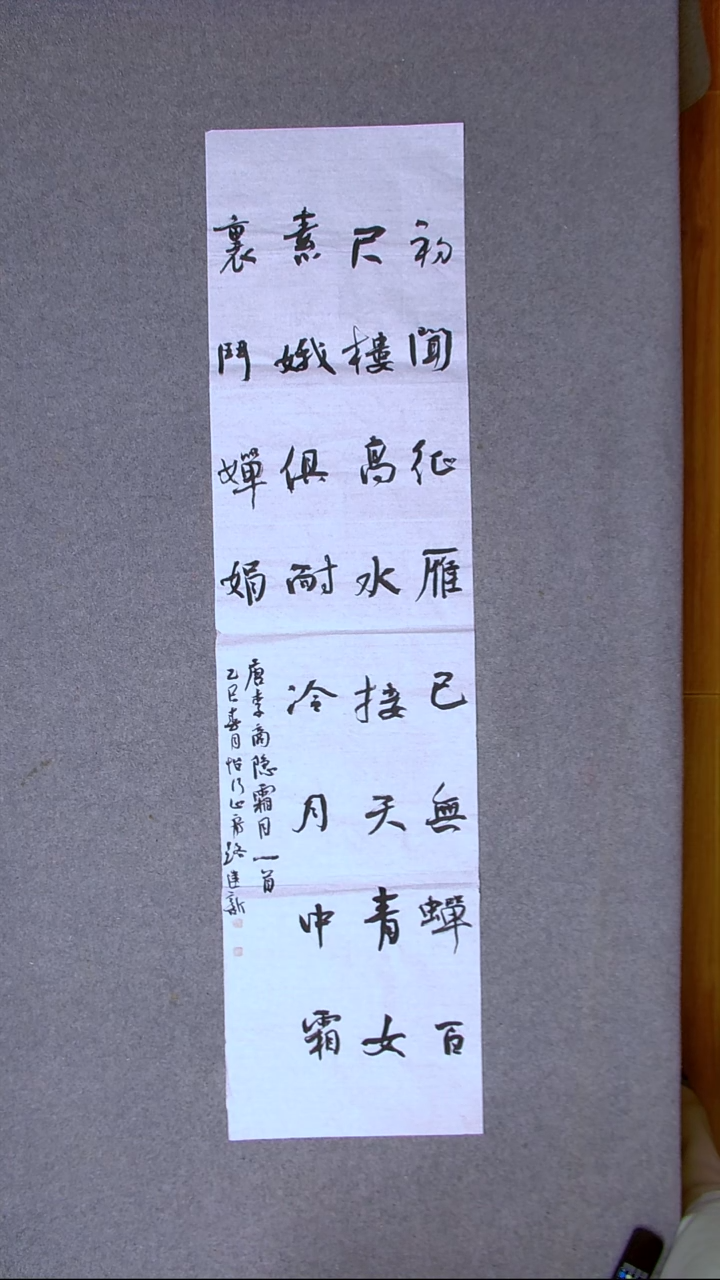 初聞征雁已無蟬百
尺樓高水接天青女
素娥俱耐冷月中霜
裏鬥嬋娟
唐李商隐霜月一首
乙巳春月 心齋 建新